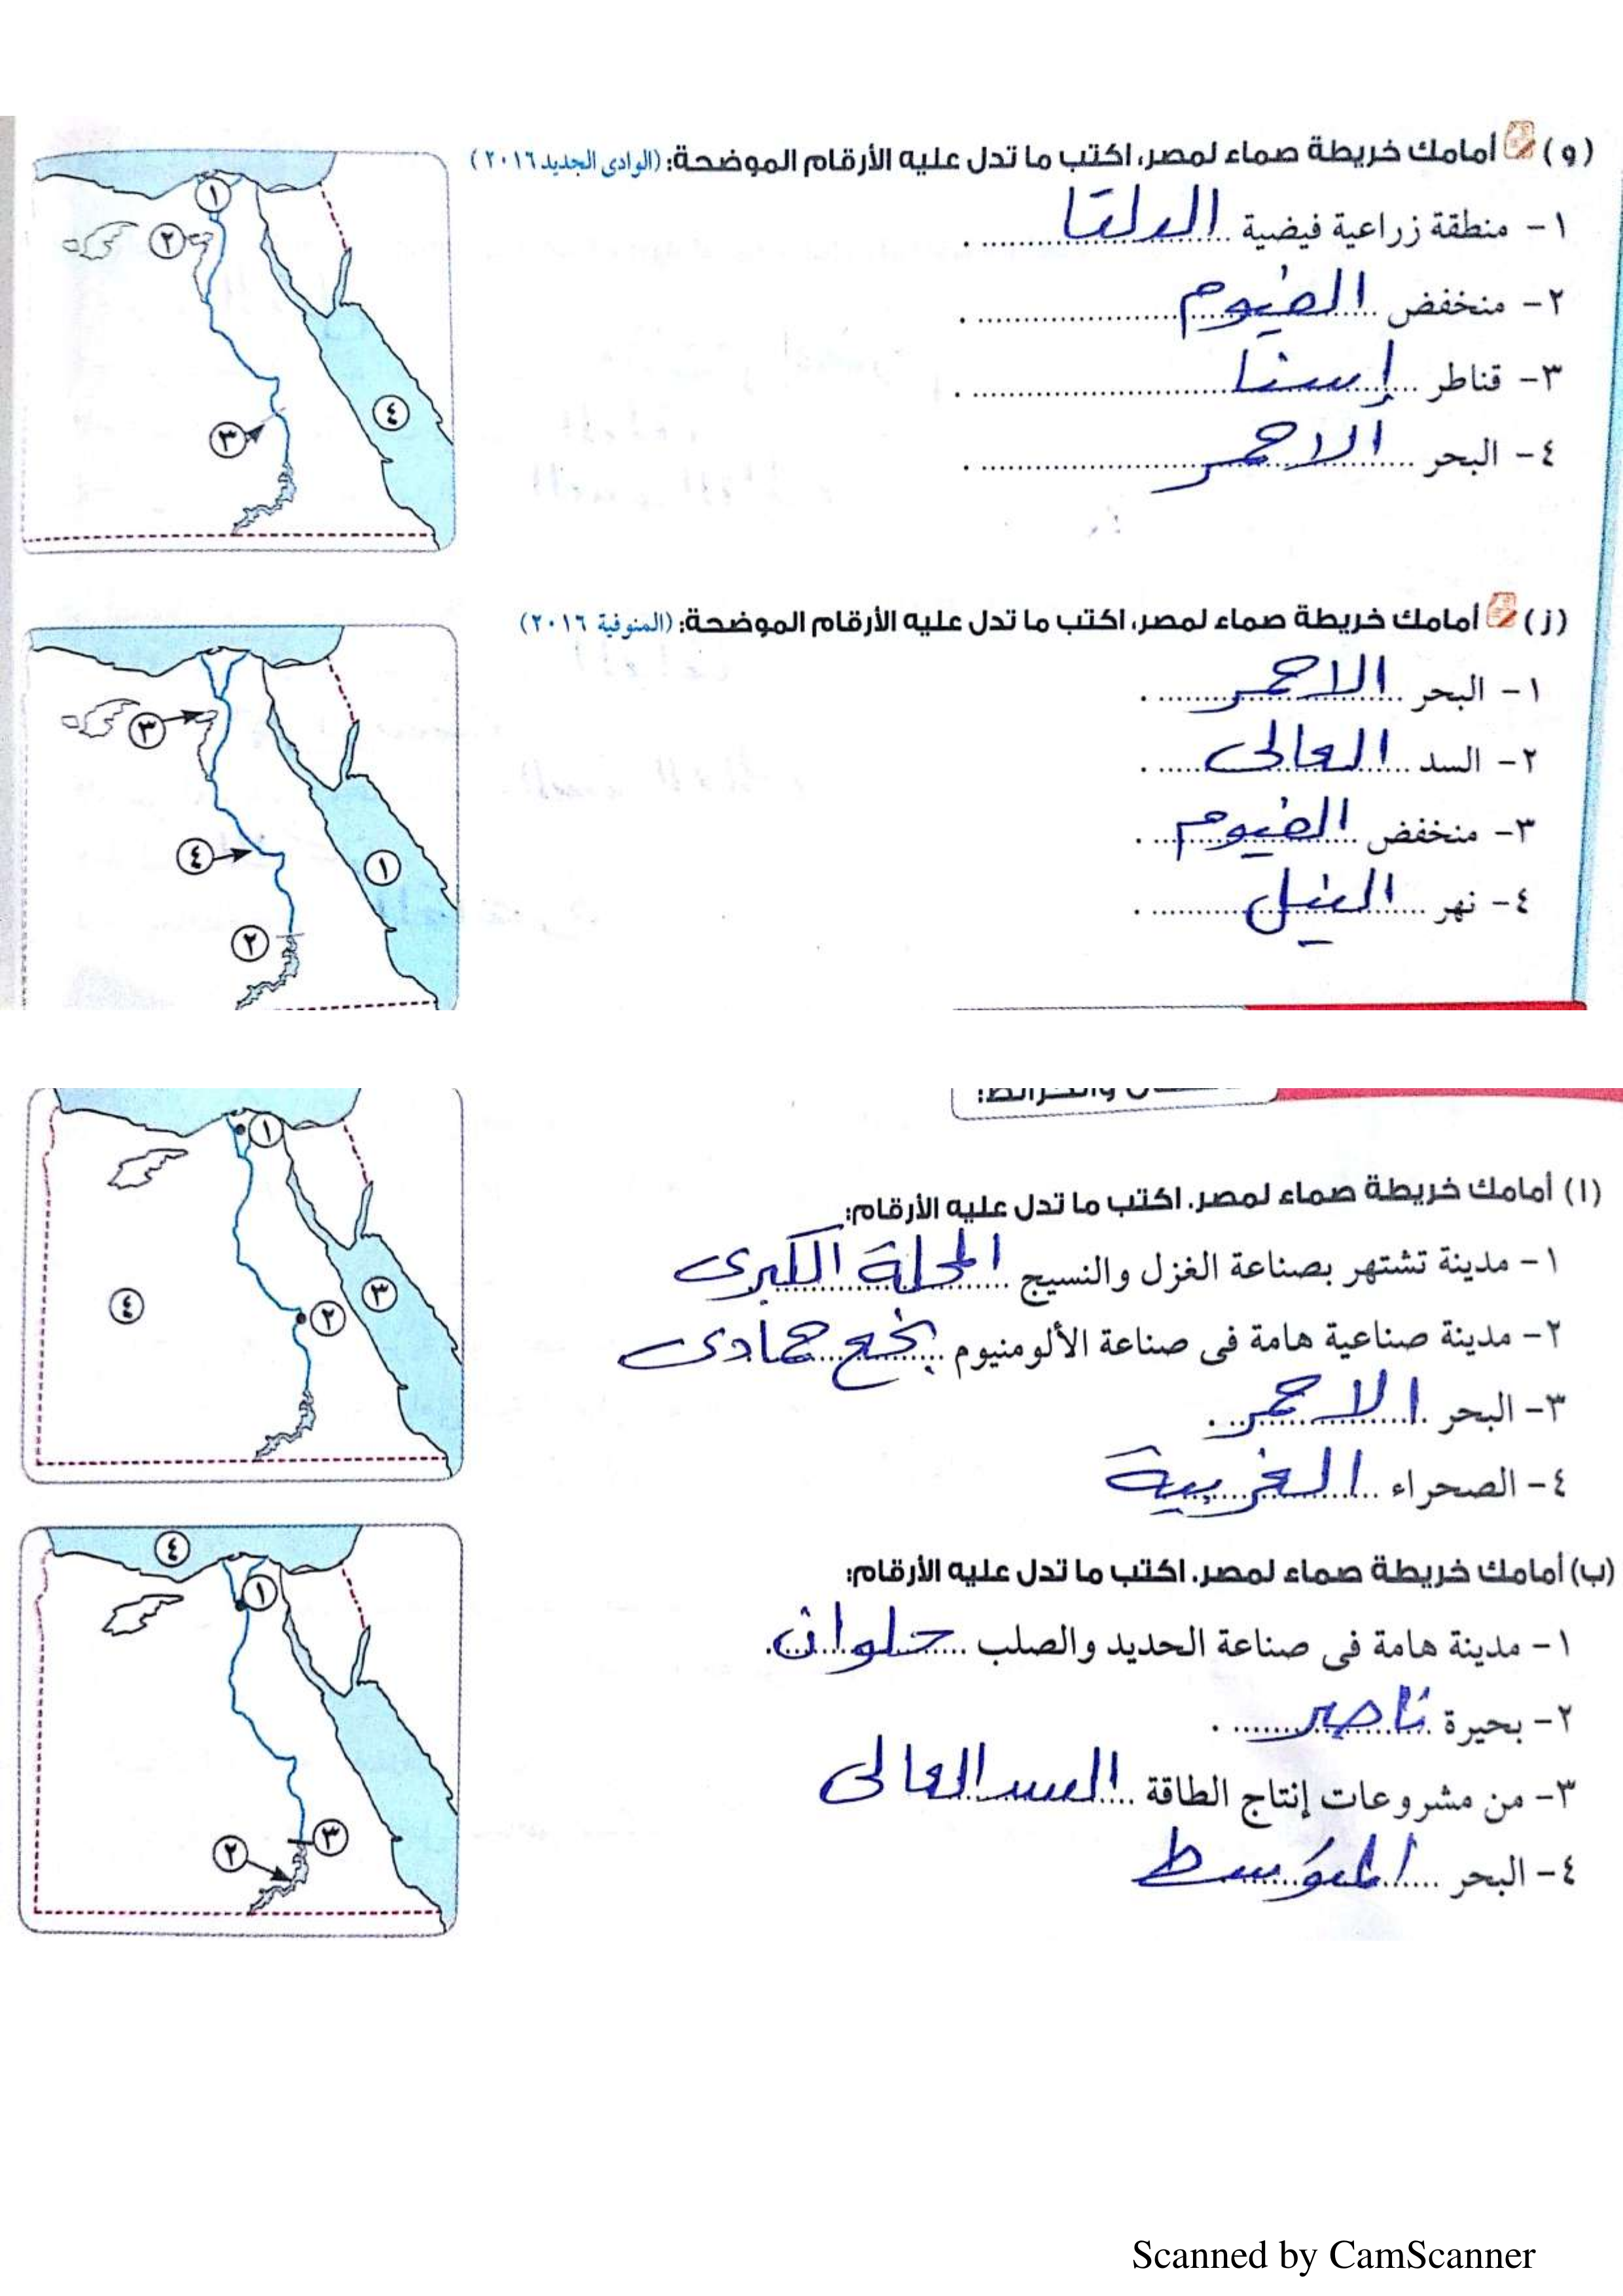 (و) أمامك خريطة صماء لمصر، اكتب ما تدل عليه الأرقام الموضحة: (الوادى الجديد ٢٠١٦)
١- منطقة زراعية فيضية الدلتا
٢- منخفض الفيوم
٣- قناطر إسنا
٤- البحر الاحمر
١
٢
٣
٤
(ز) أمامك خريطة صماء لمصر، اكتب ما تدل عليه الأرقام الموضحة: (المنوفية ٢٠١٦)
١- البحر الاحمر
٢- السد العالى
٣- منخفض الفيوم
٤- نهر النيل
٣
٤
١
٢
(ا) أمامك خريطة صماء لمصر. اكتب ما تدل عليه الأرقام:
١- مدينة تشتهر بصناعة الغزل والنسيج المحلة الكبرى
٢- مدينة صناعية هامة فى صناعة الألومنيوم نجع حمادى
٣- البحر الاحمر
٤- الصحراء الغربية
١
٣
٤
٢
(ب) أمامك خريطة صماء لمصر. اكتب ما تدل عليه الأرقام:
١- مدينة هامة فى صناعة الحديد والصلب حلوان
٢- بحيرة ناصر
٣- من مشروعات إنتاج الطاقة السد العالى
٤- البحر المتوسط
٤
١
٣
٢
Scanned by CamScanner